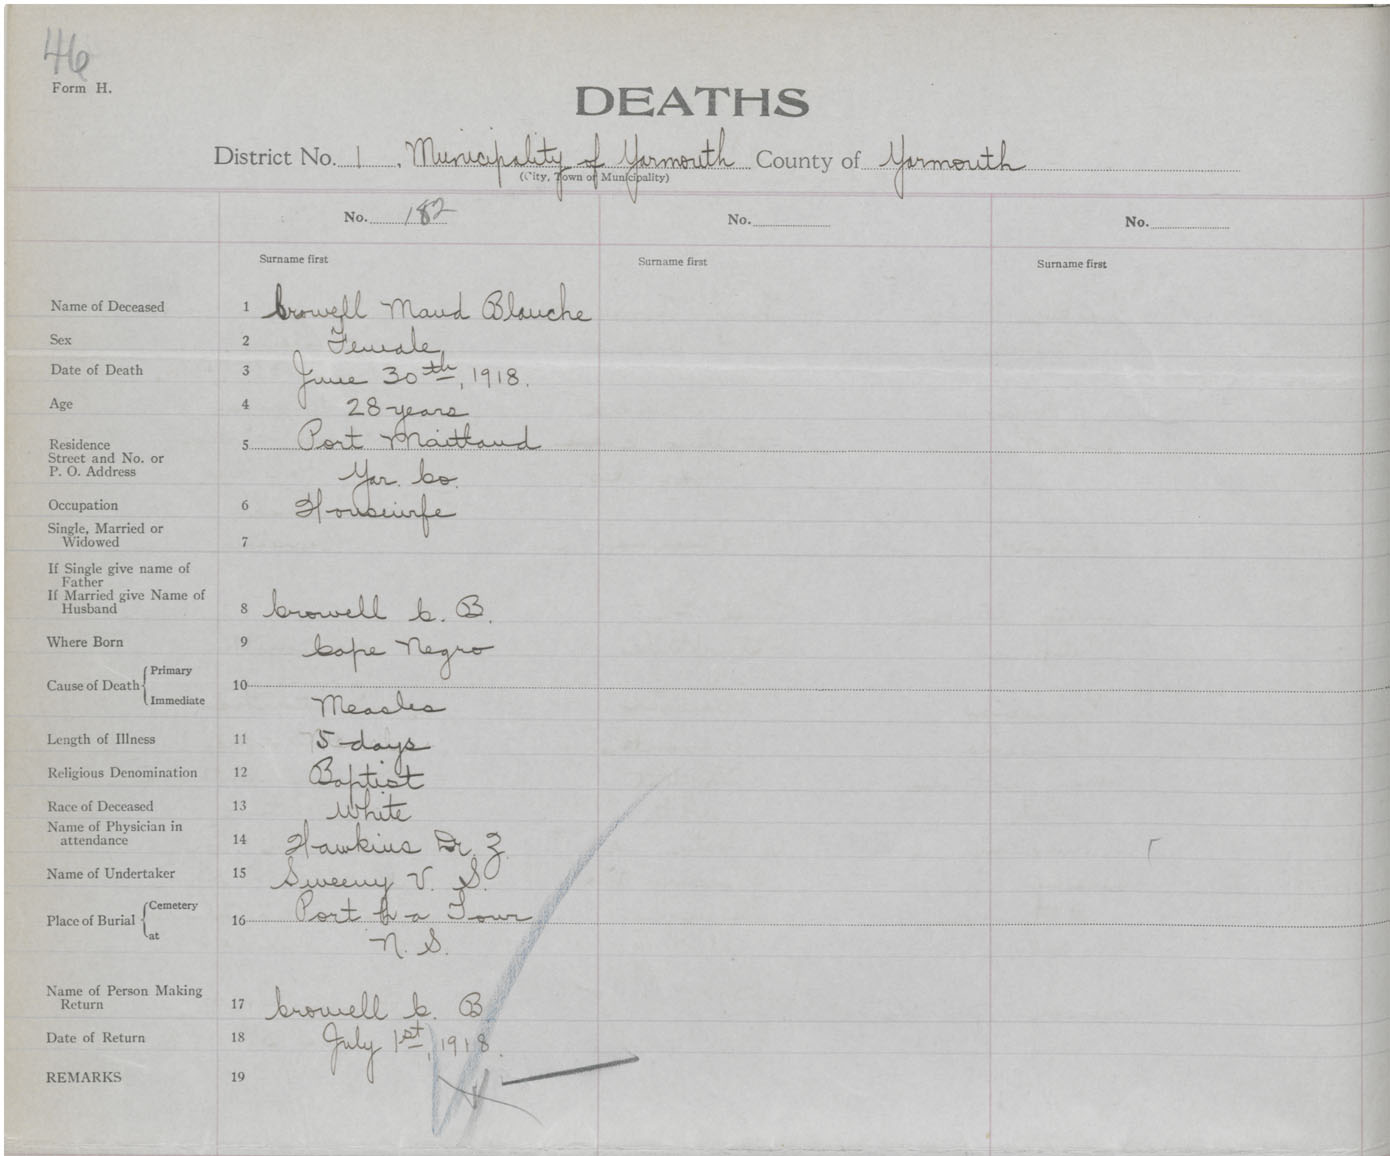 46
Form H.
DEATHS
District No. 1, Municipality of Yarmouth County of Yarmouth
(City, Town or Municipality)
No. 182 No. No.
Surname first Surname first Surname first
Name of Deceased 1 Crowell Maud Blanche
Sex 2 Female
Date of Death 3 June 30th, 1918.
Age 4 28 years
Residence 5 Port Maitland
Street and No. or
P. O. Address Yar. Co.
Occupation 6 Housewife
Single, Married or
Widowed 7
If Single give name of
Father
If Married give Name of
Husband 8 Crowell C. B.
Where Born 9 Cape Negro
Cause of Death Primary 10
Immediate Measles
Length of Illness 11 5 days
Religious Denomination 12 Baptist
Race of Deceased 13 White
Name of Physician in
attendance 14 Hawkins Dr. Z.
Name of Undertaker 15 Sweeny V. S.
Place of Burial Cemetery 16 Port La Tour
at N. S.
Name of Person Making
Return 17 Crowell C. B.
Date of Return 18 July 1st, 1918.
REMARKS 19